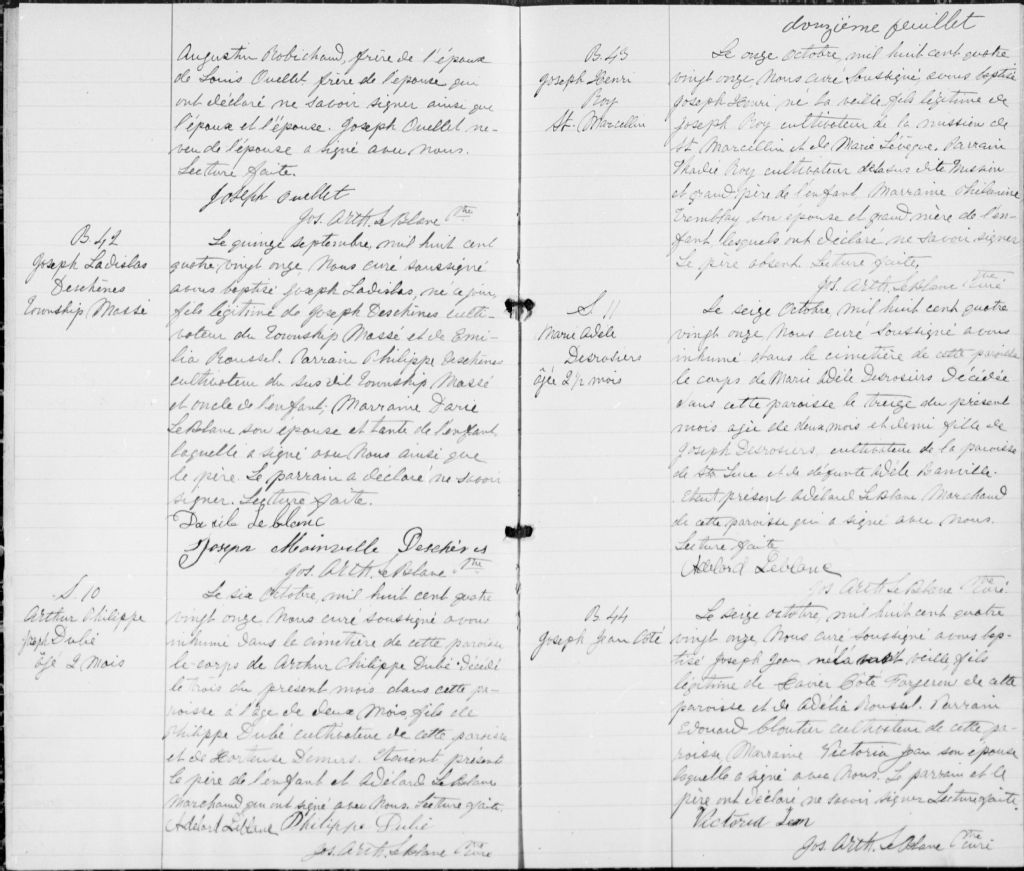 Augustin Robichaud, frère de l'époux
de Louis Ouellet frère de l'épouse qui
ont déclaré ne savoir signer ainsi que
l'époux et l'épouse. Joseph Ouellet ne-
veu de l'épouse a signé avec nous.
Lecture faite.
Joseph Ouellet
Jos. Arth. Leblanc Ptre
B. 42
Joseph Ladislas
Deschênes
Township Massé
Le quinze septembre, mil huit cent
quatre vingt onze, Nous curé soussigné
avons baptisé Joseph Ladislas, né ce jour,
fils légitime de Joseph Deschênes culti-
vateur du Township Massé et de Emi-
lia Roussel. Parrain Philippe Deschênes
cultivateur du sus dit Township Massé
et oncle de l'enfant, Marraine Darie
Leblanc son épouse et tante de l'enfant,
laquelle a signé avec Nous ainsi que
le père. Le parrain a déclaré ne savoir
signer. Lecture faite.
Leblanc
Joseph Mainville Deschênes
Jos. Arth. Leblanc Ptre
S. 10
Arthur Philippe
Joseph Dubé
âgé 2 Mois
Le six Octobre, mil huit cent quatre
vingt onze Nous curé soussigné avons
inhumé dans le cimetière de cette paroisse
le corps de Arthur Philippe Dubé décédé
le trois du présent mois dans cette pa-
roisse à l'âge de deux mois, fils de
Philippe Dubé cultivateur de cette paroisse
et de Hortense Demers. Etaient présent
le père de l'enfant et Adélard Leblanc
Marchand qui ont signé avec Nous. Lecture faite.
Adelard Leblanc Philippe Dubé
Jos. Arth. Leblanc Ptre curé
douzième feuillet
B. 43
Joseph Henri
Roy
St. Marcellin
Le onze Octobre, mil huit cent quatre
vingt onze, Nous curé Soussigné avons baptisé
Joseph Henri né la veille fils légitime de
Joseph Roy cultivateur de la mission de
St. Marcellin et de Marie Lévêque. Parrain
Roy cultivateur de la sus dite Mission
et grand père de l'enfant, Marraine Philomène
Tremblay son épouse et grand mère de l'en-
fant lesquels ont déclaré ne savoir signer
Le père absent. Lecture faite.
Jos. Arth. Leblanc Ptre Curé
S. 11
Marie Adèle
Desrosiers
âgée 2 1/2 mois
Le seize Octobre, mil huit cent quatre
vingt onze, Nous curé Soussigné avons
inhumé dans le cimetière de cette paroisse
le corps de Marie Adèle Desrosiers Décédée
dans cette paroisse le treize du présent
mois agée de deux mois et demi fille de
Joseph Desrosiers, cultivateur de la paroisse
de Ste Luce et de défunte Adèle Banville.
Etait présent Adélard Leblanc Marchand
de cette paroisse qui a signé avec nous.
Lecture faite
Adelard Leblanc
Jos. Arth. Leblanc Ptre Curé
B. 44
Joseph Jean Coté
Le seize octobre, mil huit cent quatre
vingt onze, Nous curé soussigné avons bap-
tisé Joseph Jean né la veille, fils
légitime de Xavier Côté Forgeron de cette
paroisse et de Adélia Roussel. Parrain
Edouard Cloutier cultivateur de cette pa-
roisse, Marraine Victoria Jean son épouse
laquelle a signé avec Nous. Le parrain et le
père ont déclaré ne savoir signer Lecture faite.
Victoria Jean
Jos. Arth. Leblanc Ptre curé